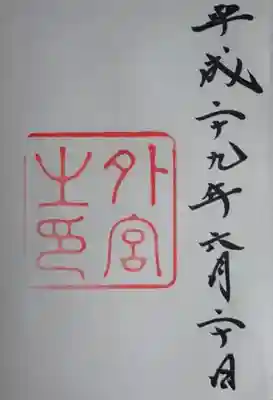 平成二十九年六月二十日
外宮
之印